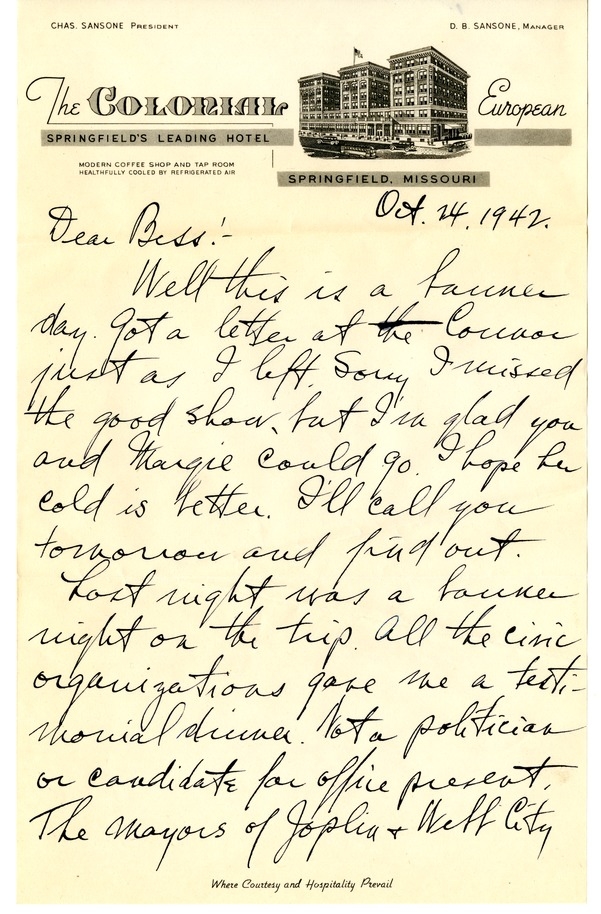 CHAS. SANSONE PRESIDENT
D. B. SANSONE, MANAGER
The COLONIAL European
SPRINGFIELD'S LEADING HOTEL
MODERN COFFEE SHOP AND TAP ROOM
HEALTHFULLY COOLED BY REFRIGERATED AIR
SPRINGFIELD, MISSOURI
Oct. 24, 1942.
Dear Bess:-
Well this is a banner
day. Got a letter at the Connor
just as I left. Sorry I missed
the good show, but I'm glad you
and Margie could go. I hope her
cold is better. I'll call you
tomorrow and find out.
Last night was a banner
night on the trip. All the civic
organizations gave me a testi-
monial dinner. Not a politician
or candidate for office present.
The mayors of Joplin & Webb City
Where Courtesy and Hospitality Prevail